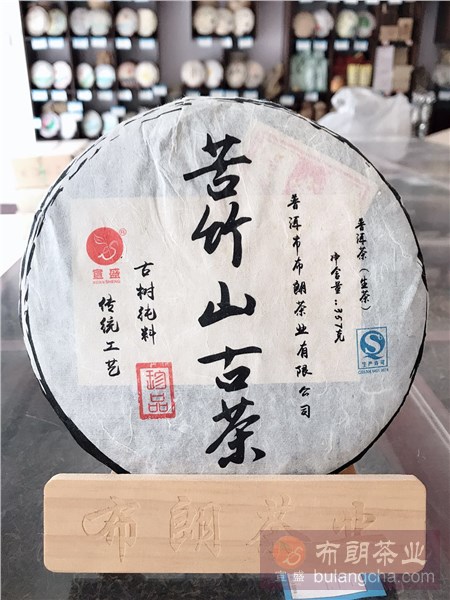 苦竹山古茶
普洱茶（生茶）
净含量：357克
普洱市布朗茶业有限公司
宜盛
古树纯料
传统工艺
珍品
生产许可
布朗茶业
布朗茶业
宜盛
bulangcha.com